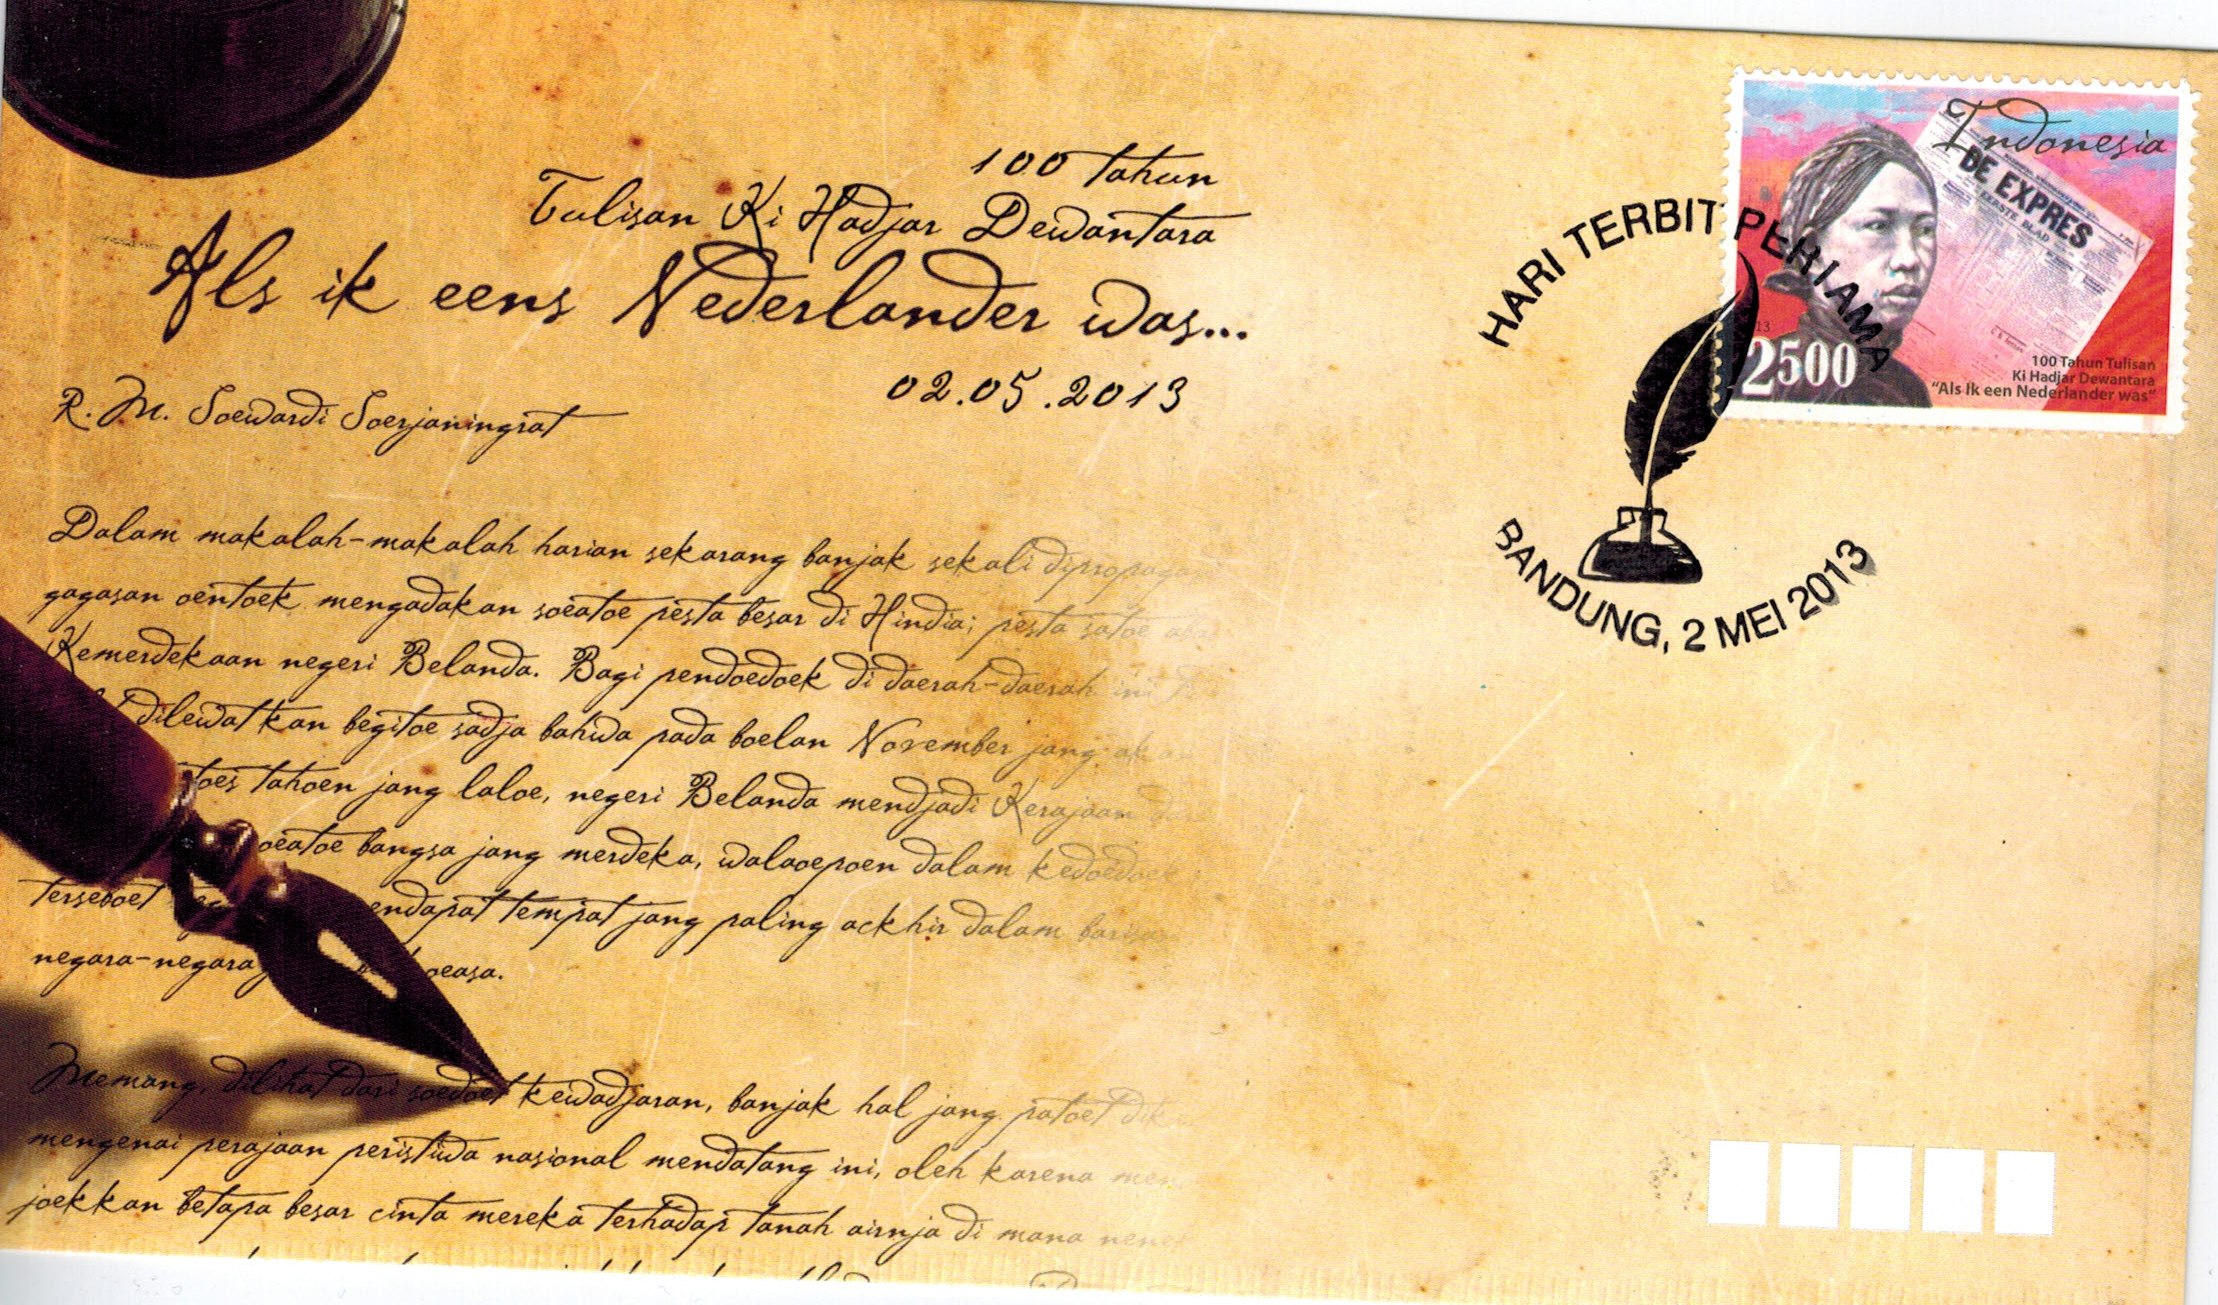 100 Tahun
Tulisan Ki Hadjar Dewantara
Als ik eens Nederlander was...
02.05.2013
R. M. Soewardi Soerjaningrat
Dalam makalah-makalah harian sekarang banjak sekali
gagasan oentoek mengadakan soeatoe pesta besar di Hindia; pesta satoe
Kemerdekaan negeri Belanda. Bagi pendoedoek di daerah-daerah ini
dilewatkan begitoe sadja bahwa pada boelan November jang
tahoen jang laloe, negeri Belanda mendjadi Kerajaan
bangsa jang merdeka, walaoepoen dalam
terseboet tempat jang paling ackhir dalam
negara-negara
Memang, dilihat dari soedoet kewadjaran, banjak hal jang patoet
mengenai perajaan peristiwa nasional mendatang ini, oleh karena
joekkan betapa besar cinta mereka terhadap tanah airnja di mana
Indonesia
DE EXPRES
EERSTE BLAD
2500
100 Tahun Tulisan
Ki Hadjar Dewantara
"Als Ik een Nederlander was"
HARI TERBIT PERTAMA
BANDUNG, 2 MEI 2013